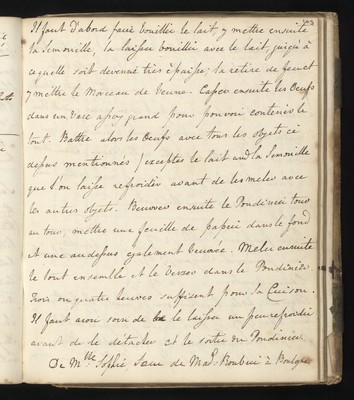 Il faut D'abord faire bouillir le lait, y mettre ensuite
la Semouille, la laisser bouillir avec le lait, jusqu'à
ce quelle soit devenue très épaisse; la retirer de feu et
y mettre le Morceau de Beurre. Casser ensuite les Oeufs
dans un Vase assez grand pour pouvoir contenir le
tout. Battre alors les Oeufs avec tous les objets ci
dessus mentionnés, exceptés le lait and la Semouille
que l'on laisse refroidir avant de les meler avec
les autres objets. Beurrer ensuite le Poudinier tout
au tour, mettre une feuille de papier dans le fond
et une au dessus également beurrée. Meler ensuite
le tout ensemble et le Verser dans le Poudinier.
Trois ou quatre heures suffisent pour la Cuison.
Il faut avoir soin de le laisser un peu refroidir
avant de le detacher et le sortir du Poudinier.
De Mlle. Sophie Soeur de Mad.